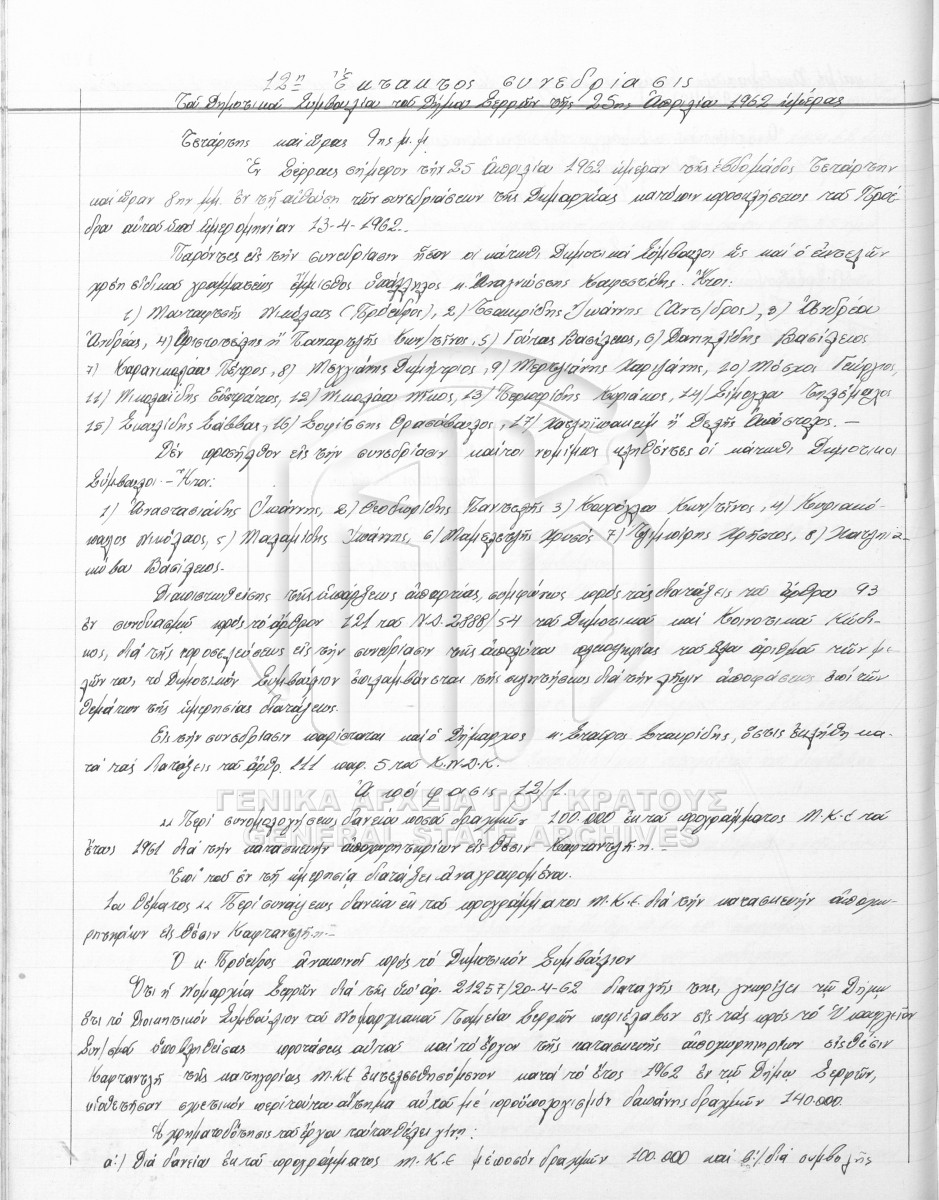 12η Ἔκτακτος συνεδρίασις
Τοῦ Δημοτικοῦ Συμβουλίου τοῦ Δήμου Σερρῶν τῆς 25ης Ἀπριλίου 1962 ἡμέρας
Τετάρτης καὶ ὥρας 9ης μ.μ.
Ἐν Σέρραις σήμερον τὴν 25 Ἀπριλίου 1962 ἡμέραν τῆς ἑβδομάδος Τετάρτην
καὶ ὥραν 9ην μμ. ἐν τῇ αἰθούσῃ τῶν συνεδριάσεων τῆς Δημαρχίας κατόπιν προσκλήσεως τοῦ Προέ-
δρου αὐτοῦ ὑπὸ ἡμερομηνίαν 13-4-1962.
Παρόντες εἰς τὴν συνεδρίασιν ἦσαν οἱ κάτωθι Δημοτικοὶ Σύμβουλοι ὡς καὶ ὁ ἐκτελῶν
χρέη εἰδικοῦ γραμματέως ἔμμισθος ὑπάλληλος κ. Ἀναγνώστης Καρεστέδης. Ἤτοι:
1) Μουταφτσῆς Νικόλαος (Πρόεδρος), 2) Τσακιρίδης Ἰωάννης (Αντ/δρος), 3) Ἀνδρέου
Ἀνδρέας, 4) Ἀριστοτέλης ἢ Παπαρτζῆς Κων/τῖνος, 5) Γούτας Βασίλειος, 6) Δανιηλίδης Βασίλειος
7) Καρανικολάου Πέτρος, 8) Μελλιάης Δημήτριος, 9) Μερτζιάνης Χαριλάης, 10) Μόσχου Γεώργιος,
11) Νικολαΐδης Εὐστράτιος, 12) Νικολάου Νῖκος, 13) Περπερίδης Κυριάκος, 14) Σίμογλου Τηλέμαχος
15) Σικαλίδης Σάββας, 16) Σοφίτσης Θρασύβουλος, 17) Χατζηϊωακεὶμ ἢ Δελῆς Ἀπόστολος. —
Δὲν προσῆλθον εἰς τὴν συνεδρίασιν καίτοι νομίμως κληθέντες οἱ κάτωθι Δημοτικοὶ
Σύμβουλοι. - Ἤτοι:
1) Ἀναστασιάδης Ἰωάννης, 2) Θεοδωρίδης Παντελῆς 3) Καρόγλου Κων/τῖνος, 4) Κυριακό-
πουλος Νικόλαος, 5) Μαλαμίδης Ἰωάννης, 6) Μαμελετζῆς Χρυσός 7) Χρῆστος, 8) Χατζηϊα-
κώβου Βασίλειος.
Διαπιστωθείσης τῆς ὑπάρξεως ἀπαρτίας, συμφώνως πρὸς τὰς διατάξεις τοῦ ἄρθρου 93
ἐν συνδυασμῷ πρὸς τὸ ἄρθρον 121 τοῦ Ν.Δ. 2888/54 τοῦ Δημοτικοῦ καὶ Κοινοτικοῦ Κώδι-
κος, διὰ τῆς προσελεύσεως εἰς τὴν συνεδρίασιν τῆς ἀπολύτου πλειοψηφίας τοῦ ὅλου ἀριθμοῦ τῶν με-
λῶν του, τὸ Δημοτικὸν Συμβούλιον ἐπιλαμβάνεται τῆς συζητήσεως διὰ τὴν λῆψιν ἀποφάσεως ἐπὶ τῶν
θεμάτων τῆς ἡμερησίας διατάξεως.
Εἰς τὴν συνεδρίασιν παρίσταται καὶ ὁ Δήμαρχος κ. Σταῦρος Σταυρίδης, ὅστις ἐκλήθη κα-
τὰ τὰς διατάξεις τοῦ ἄρθρ. 111 παρ. 5 τοῦ Κ.Ν.Δ.Κ.
Ἀπόφασις 12/1.
"Περὶ συνομολογήσεως δανείου ποσοῦ δραχμῶν 100.000 ἐκ τοῦ προγράμματος Μ.Κ.Ε τοῦ
ἔτους 1961 διὰ τὴν κατασκευὴν ἀποχωρητηρίων εἰς θέσιν Καφταντζῆ. —
Ἐπὶ τοῦ ἐν τῇ ἡμερησίᾳ διατάξει ἀναγραφομένου.
1ου θέματος "Περὶ συνάψεως δανείου ἐκ τοῦ προγράμματος Μ.Κ.Ε διὰ τὴν κατασκευὴν ἀποχω-
ρητηρίων εἰς θέσιν Καφταντζῆ. -
Ὁ κ. Πρόεδρος ἀνακοινοῖ πρὸς τὸ Δημοτικὸν Συμβούλιον
Ὅτι ἡ Νομαρχία Σερρῶν διὰ τῆς ὑπ' ἀρ. 21257/20-4-62 διαταγῆς της, γνωρίζει τῷ Δήμῳ
ὅτι τὸ Διοικητικὸν Συμβούλιον τοῦ Νομαρχιακοῦ Ταμείου Σερρῶν περιέλαβεν εἰς τὰς πρὸς τὸ Ὑπουργεῖον
Συν/σμοῦ ὑποβληθείσας προτάσεις αὐτοῦ καὶ τὸ ἔργον τῆς κατασκευῆς ἀποχωρητηρίων εἰς θέσιν
Καφταντζῆ τῆς κατηγορίας Μ.Κ.Ε ἐκτελεσθησόμενον κατὰ τὸ ἔτος 1962 ἐν τῷ Δήμῳ Σερρῶν,
υἱοθετῆσαν σχετικὸν περὶ τούτου αἴτημα αὐτοῦ μὲ προϋπολογισμὸν δαπάνης δραχμῶν 140.000.
Ἡ χρηματοδότησις τοῦ ἔργου τούτου θέλει γίνῃ:
α:) Διὰ δανείου ἐκ τοῦ προγράμματος Μ.Κ.Ε μὲ ποσὸν δραχμῶν 100.000 καὶ β:) διὰ συμβολῆς
ΓΕΝΙΚΑ ΑΡΧΕΙΑ ΤΟΥ ΚΡΑΤΟΥΣ
GENERAL STATE ARCHIVES